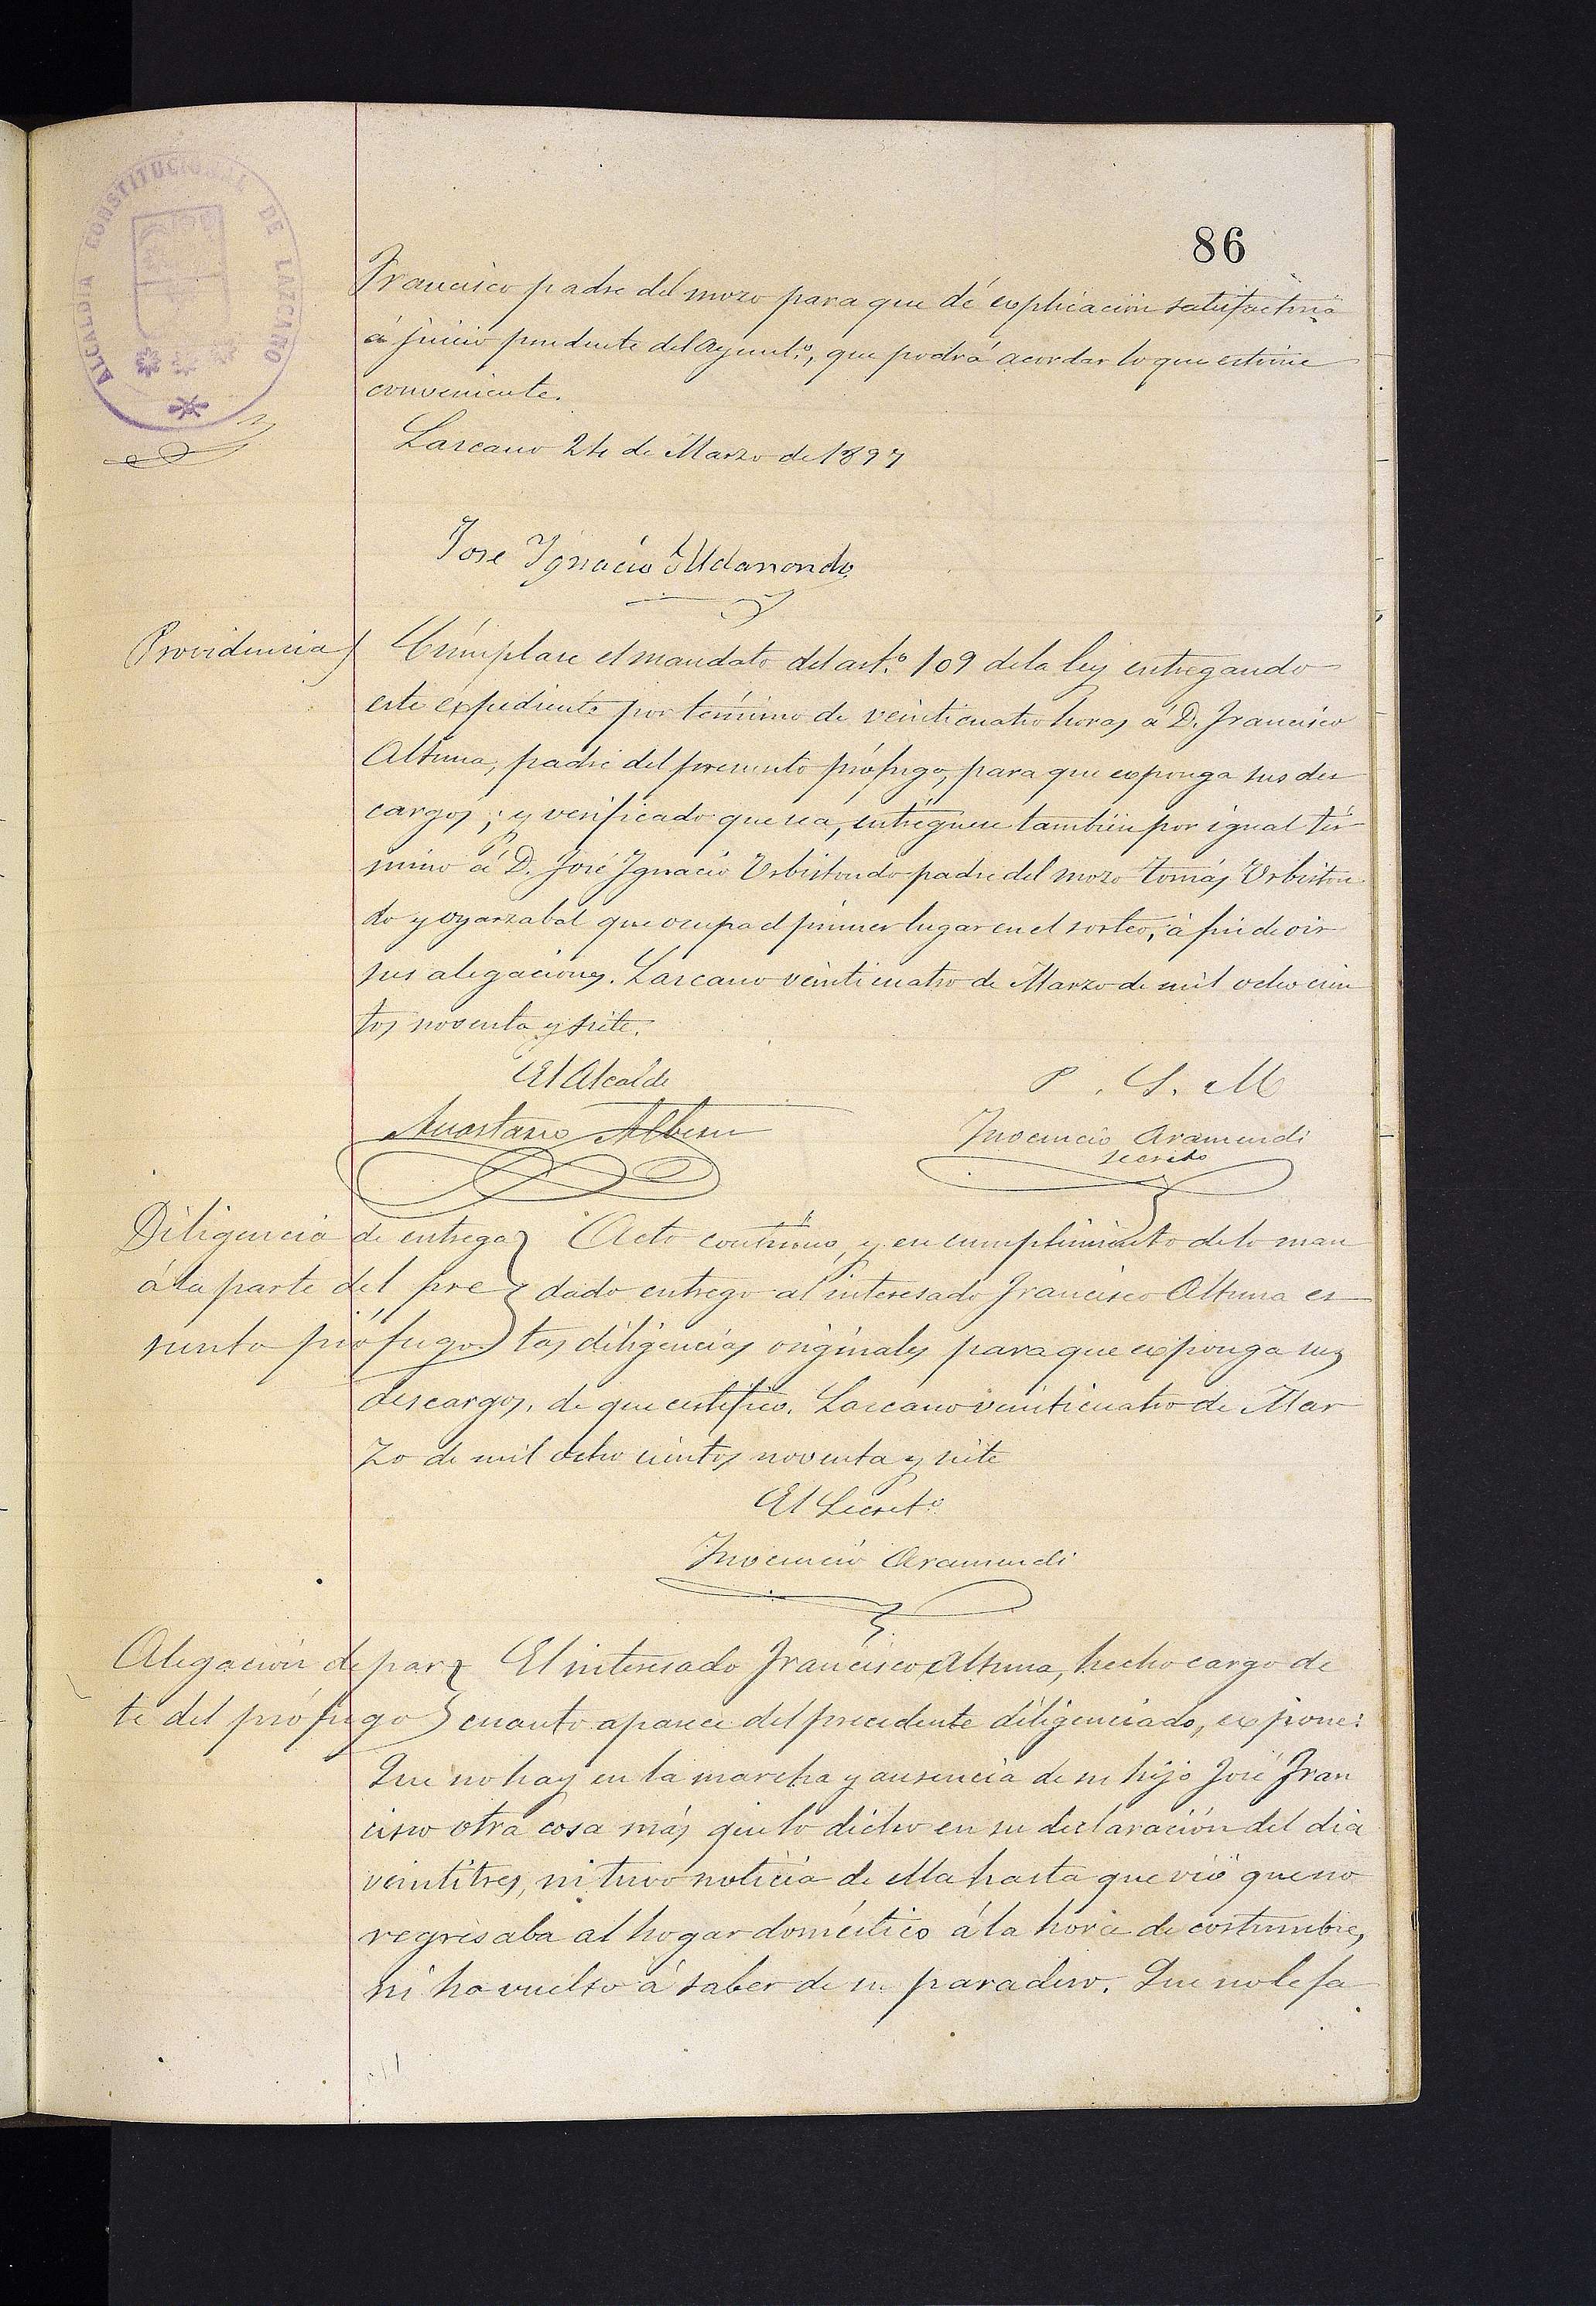 86
ALCALDIA CONSTITUCIONAL DE LAZCANO
Francisco padre del mozo para que dé explicación satisfactoria
á juicio prudente del Ayunt.º, que podrá acordar lo que estime
conveniente.
Lazcano 24 de Marzo de 1897
Jose Ygnacio Aldanondo
Providencia) Cúmplase el mandato del art.º 109 de la ley entregando
este expediente por término de veinticuatro horas á D. Francisco
Altuna, padre del presunto prófugo, para que exponga sus des
cargos; y verificado que sea, entréguese también por igual tér
mino á D. José Ygnacio Urbistondo padre del mozo Tomás Urbiston
do y Oyarzabal que ocupa el primer lugar en el sorteo, á fin de oir
sus alegaciones. Lazcano veinticuatro de Marzo de mil ochocien
tos noventa y siete.
El Alcalde P. S. M
Anastasio Alberu Inocencio Aramendi
secreto
Diligencia de entrega Acto contínuo, y en cumplimiento de lo man
á la parte del pre dado entrego al interesado Francisco Altuna es
sunto prófugo tas diligencias originales para que exponga sus
descargos, de que certifico. Lazcano veinticuatro de Mar
zo de mil ochocientos noventa y siete
El Secretº
Inocencio Aramendi
Alegación de par El interesado Francisco Altuna, hecho cargo de
te del prófugo cuanto aparece del precedente diligenciado, expone:
Que no hay en la marcha y ausencia de su hijo José Fran
cisco otra cosa más que lo dicho en su declaración del dia
veintitres, ni tuvo noticia de ella hasta que vió que no
regresaba al hogar doméstico á la hora de costumbre,
ni ha vuelto á saber de su paradero. Que no le fa